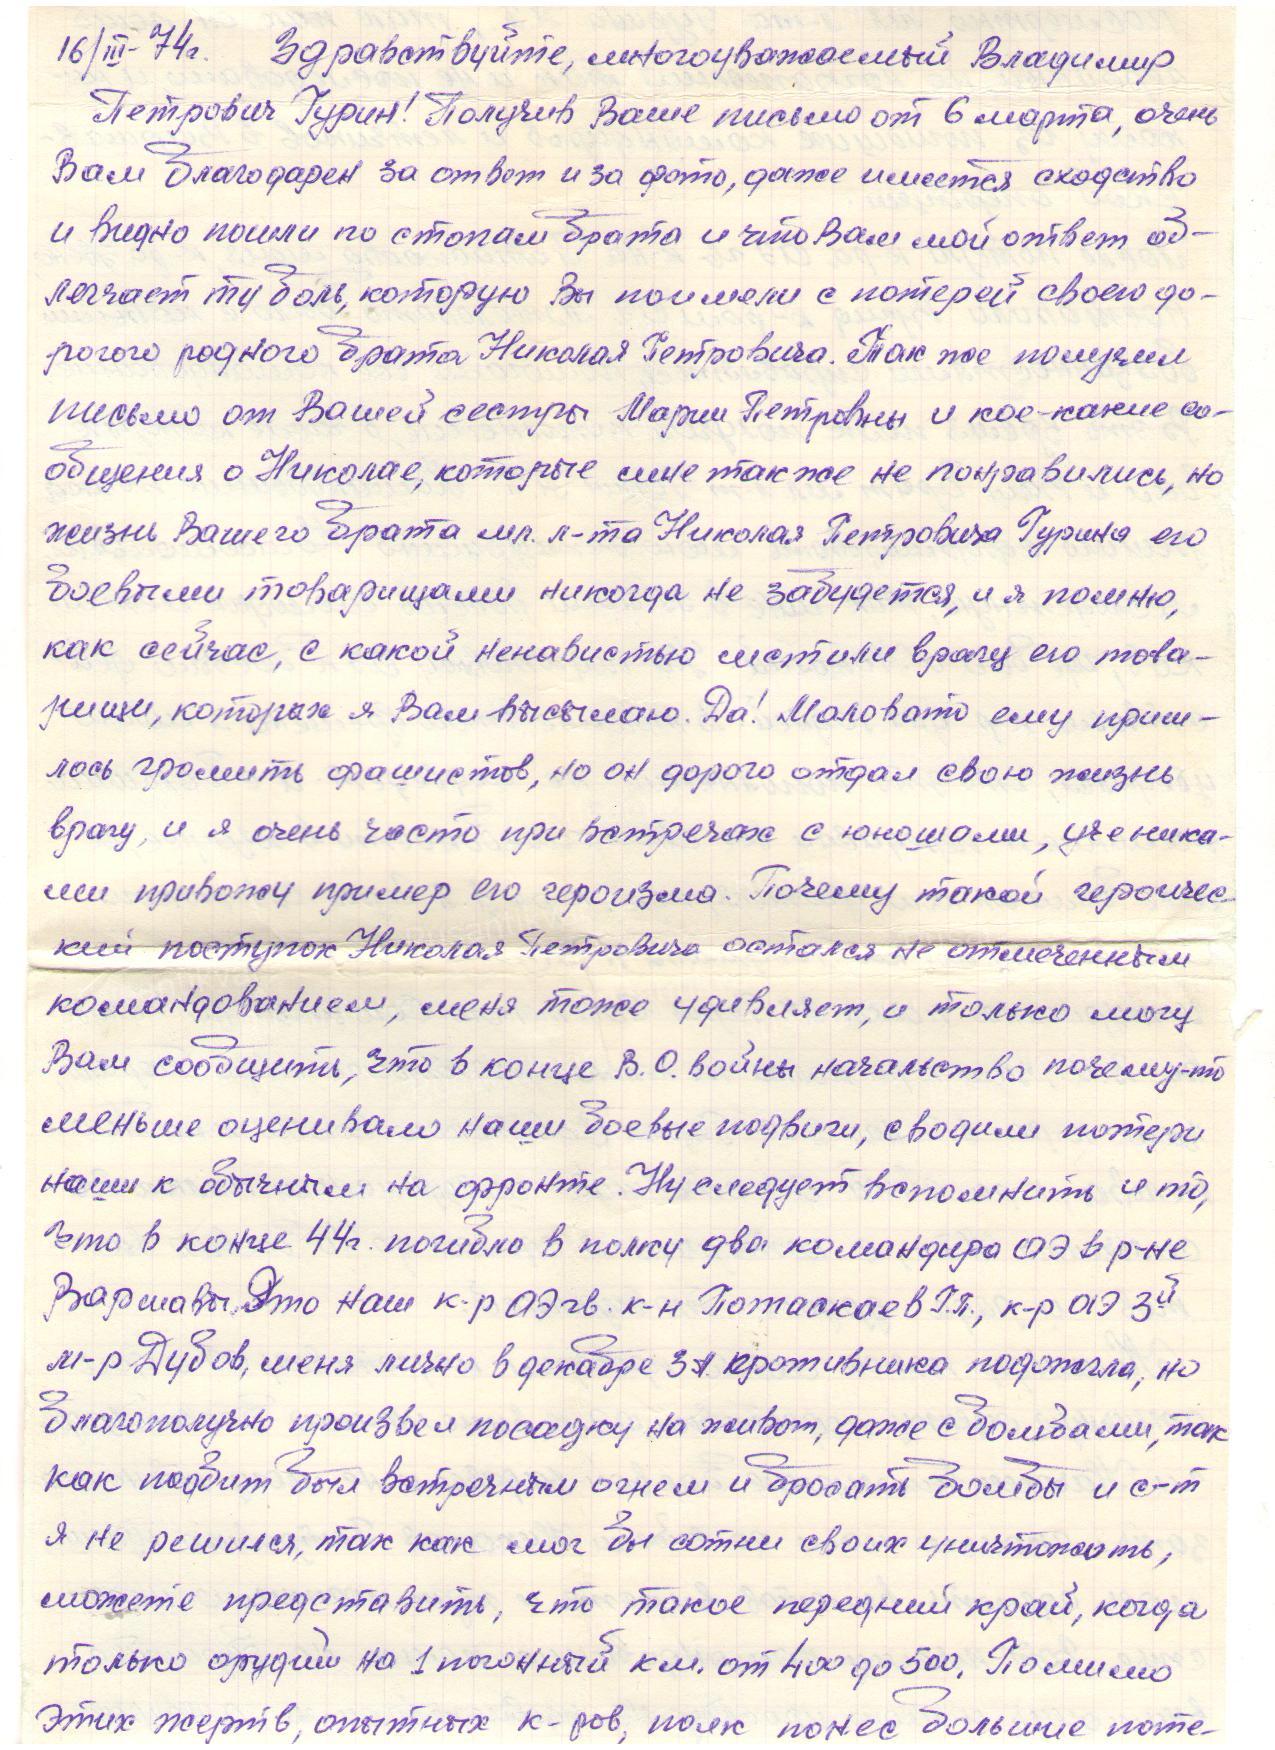 16/III-74г. Здравствуйте, многоуважаемый Владимир
Петрович Гурин! Получив Ваше письмо от 6 марта, очень
Вам благодарен за ответ и за фото, даже имеется сходство
и видно пошли по стопам брата и что Вам мой ответ об-
легчает ту боль, которую Вы поимели с потерей своего до-
рогого родного брата Николая Петровича. Так же получил
письмо от Вашей сестры Марии Петровны и кое-какие со-
общения о Николае, которые мне также не понравились, но
жизнь Вашего брата мл. л-та Николая Петровича Гурина его
боевыми товарищами никогда не забудется, и я помню,
как сейчас, с какой ненавистью мстили врагу его това-
рищи, которых я Вам высылаю. Да! Маловато ему приш-
лось громить фашистов, но он дорого отдал свою жизнь
врагу, и я очень часто при встречах с юношами, ученика-
ми привожу пример его героизма. Почему такой героичес-
кий поступок Николая Петровича остался не отмеченным
командованием, меня тоже удивляет, и только могу
Вам сообщить, что в конце В.О. войны начальство почему-то
меньше оценивало наши боевые подвиги, сводили потери
наши к обычным на фронте. Ну следует вспомнить и то,
что в конце 44г. погибло в полку два командира АЭ в р-не
Варшавы. Это наш к-р АЭ гв. к-н Потаскаев Г.П., к-р АЭ 3й
м-р Дубов, меня лично в декабре ЗА противника подожгла, но
благополучно произвел посадку на живот, даже с бомбами, так
как подбит был встречным огнем и бросать бомбы и с-т
я не решился, так как мог бы сотни своих уничтожить,
можете представить, что такое передний край, когда
только орудий на 1 погонный км. от 400 до 500. Помимо
этих жертв, опытных к-ров, полк понес большие поте-